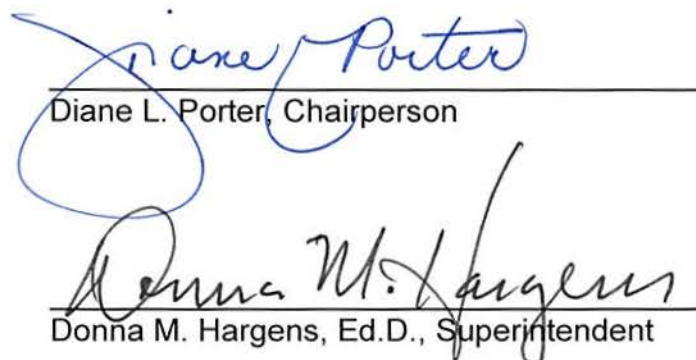 Diane L Porter
Diane L. Porter, Chairperson
Donna M. Hargens
Donna M. Hargens, Ed.D., Superintendent